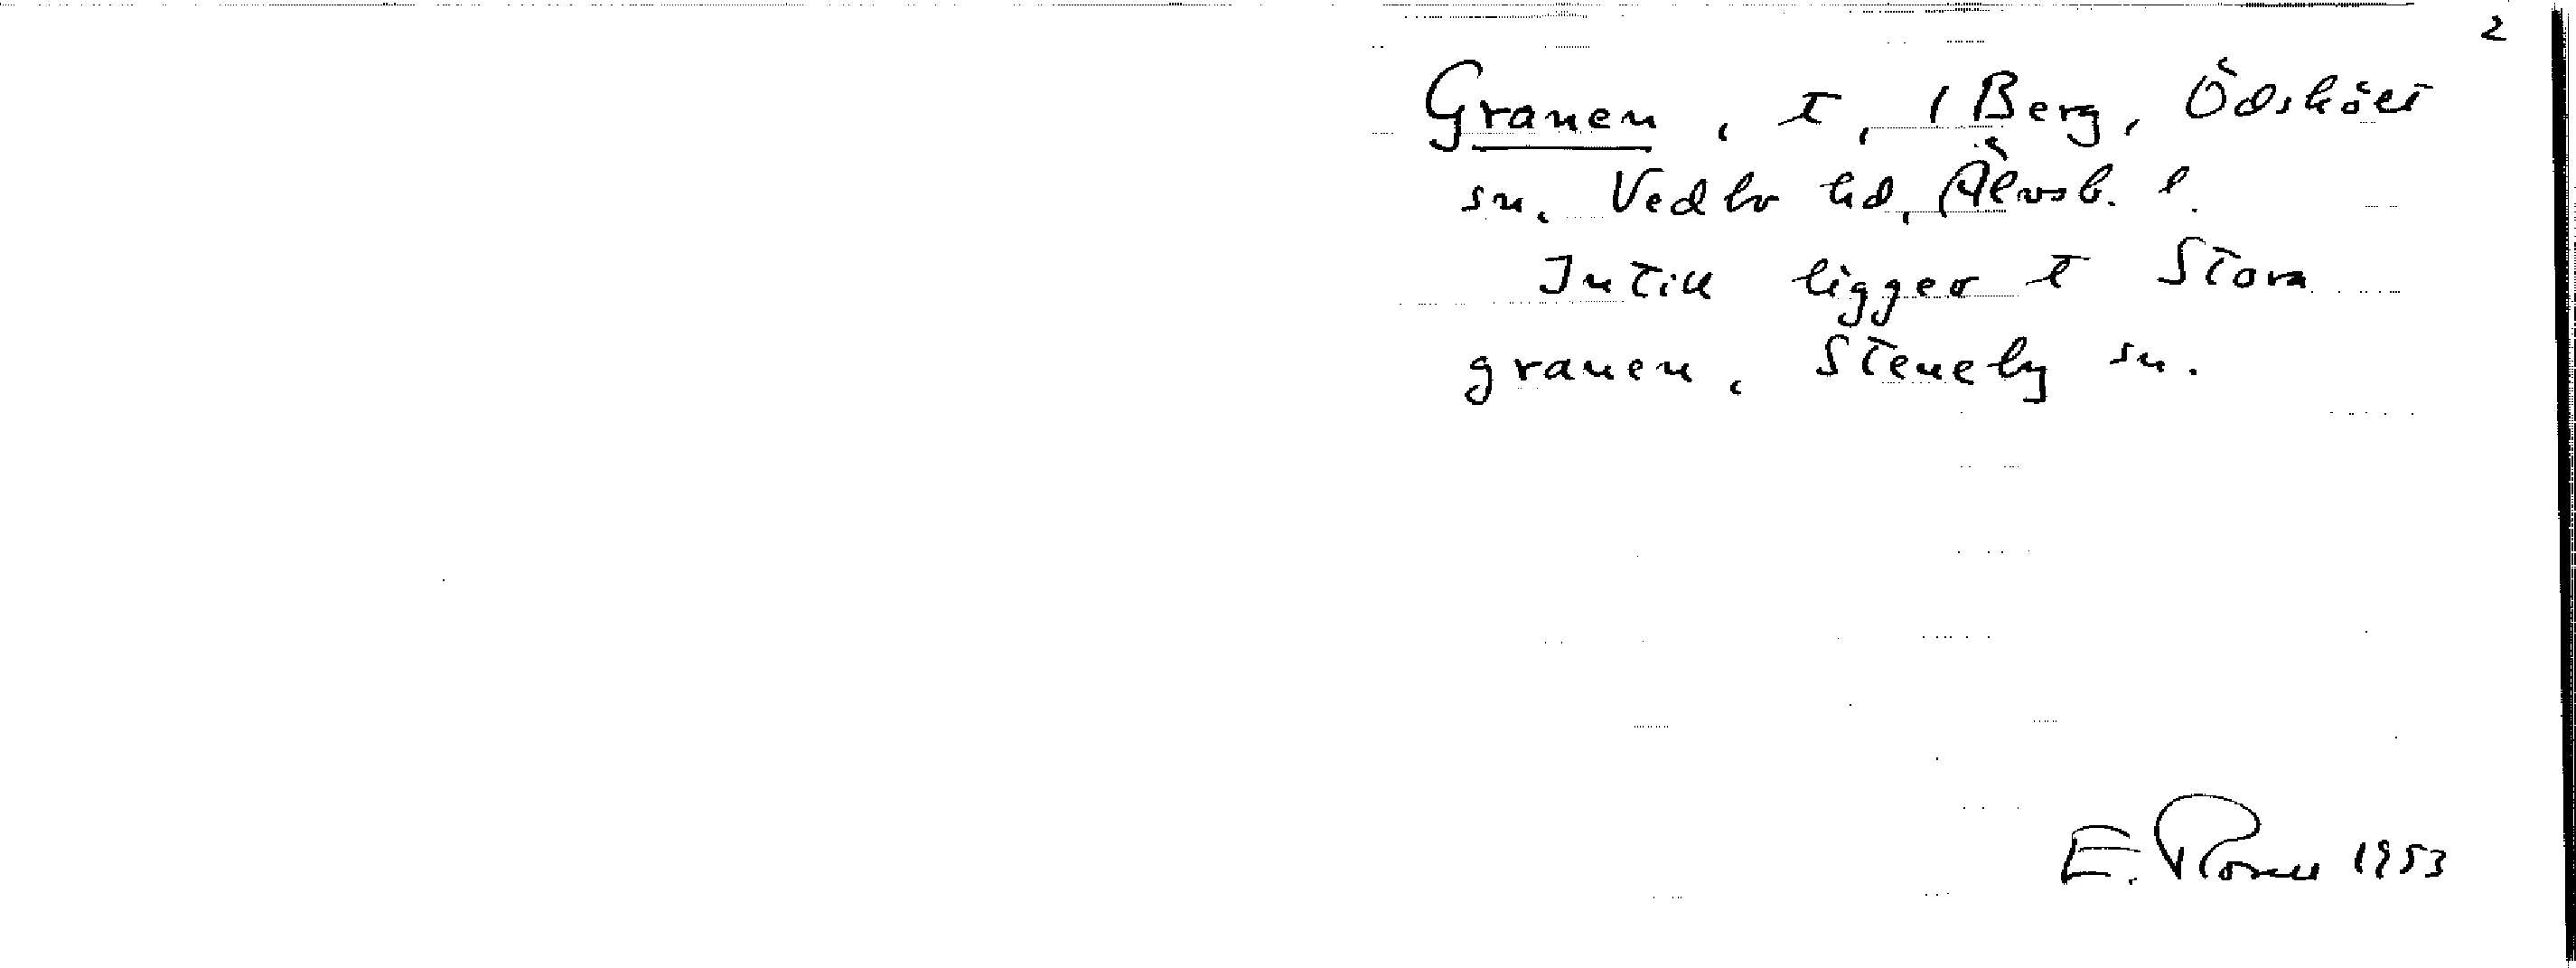 2
Granen, t, 1 Berg, Ödsköls
sn. Vedbo hd, Älvsb. l.
Intill ligger t Stora
granen, Steneby sn.
E. Rosell 1953